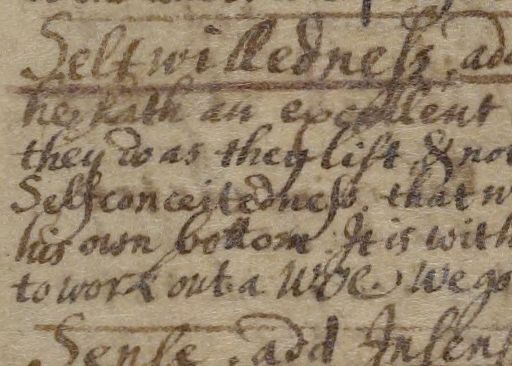 Selfwilledness, add
he hath an excellent
they do as they list, & not
Selfconceitedness. that w
his own bottom. It is with
to work out a Woe. We go
Sense, add Insens